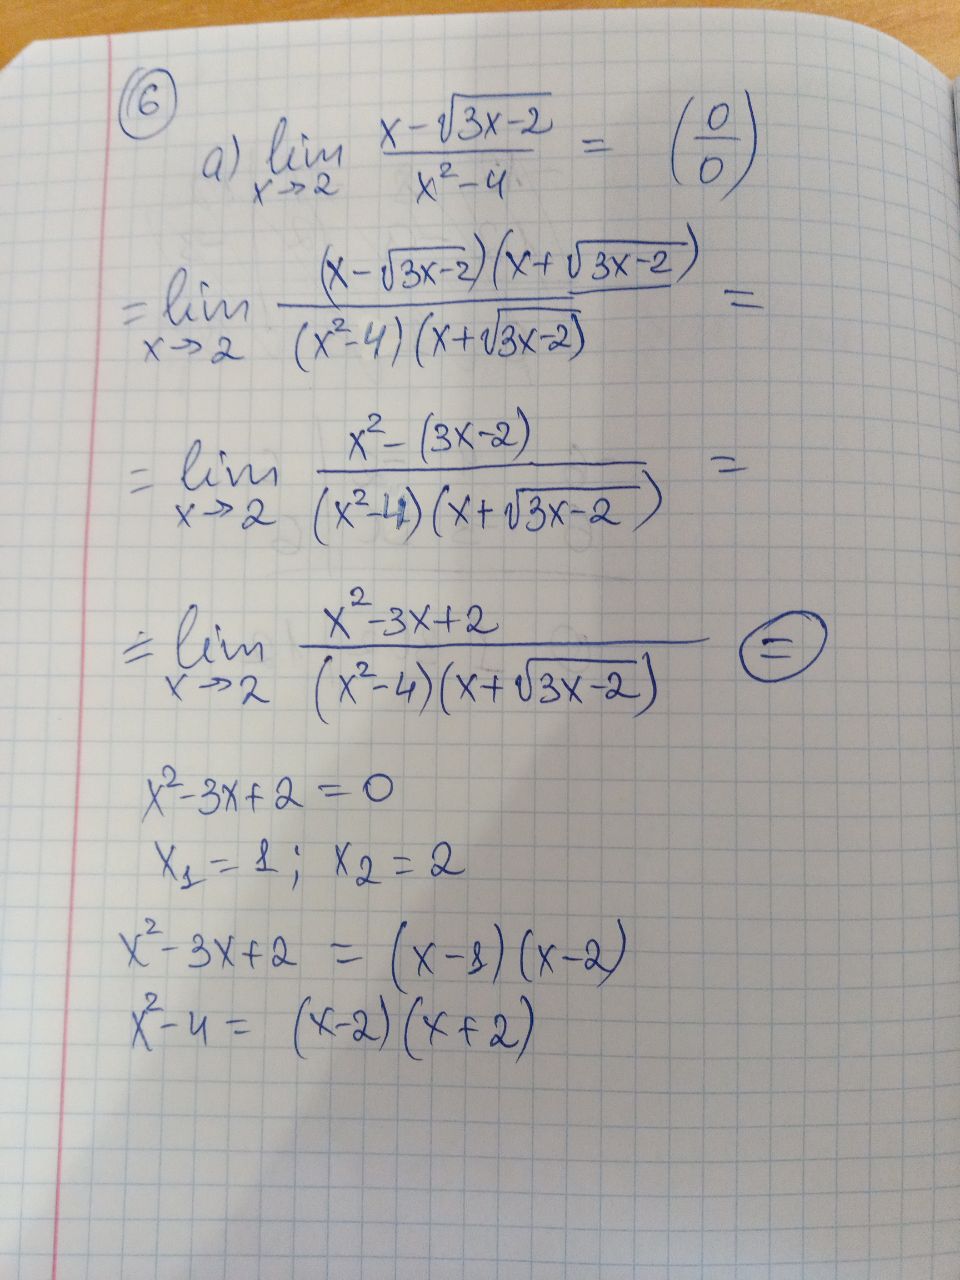 6
а) lim x→2 (x-√(3x-2))/(x²-4) = (0/0)
= lim x→2 ((x-√(3x-2))(x+√(3x-2)))/((x²-4)(x+√(3x-2))) =
= lim x→2 (x²-(3x-2))/((x²-4)(x+√(3x-2))) =
= lim x→2 (x²-3x+2)/((x²-4)(x+√(3x-2))) =
x²-3x+2 = 0
x₁ = 1; x₂ = 2
x²-3x+2 = (x-1)(x-2)
x²-4 = (x-2)(x+2)